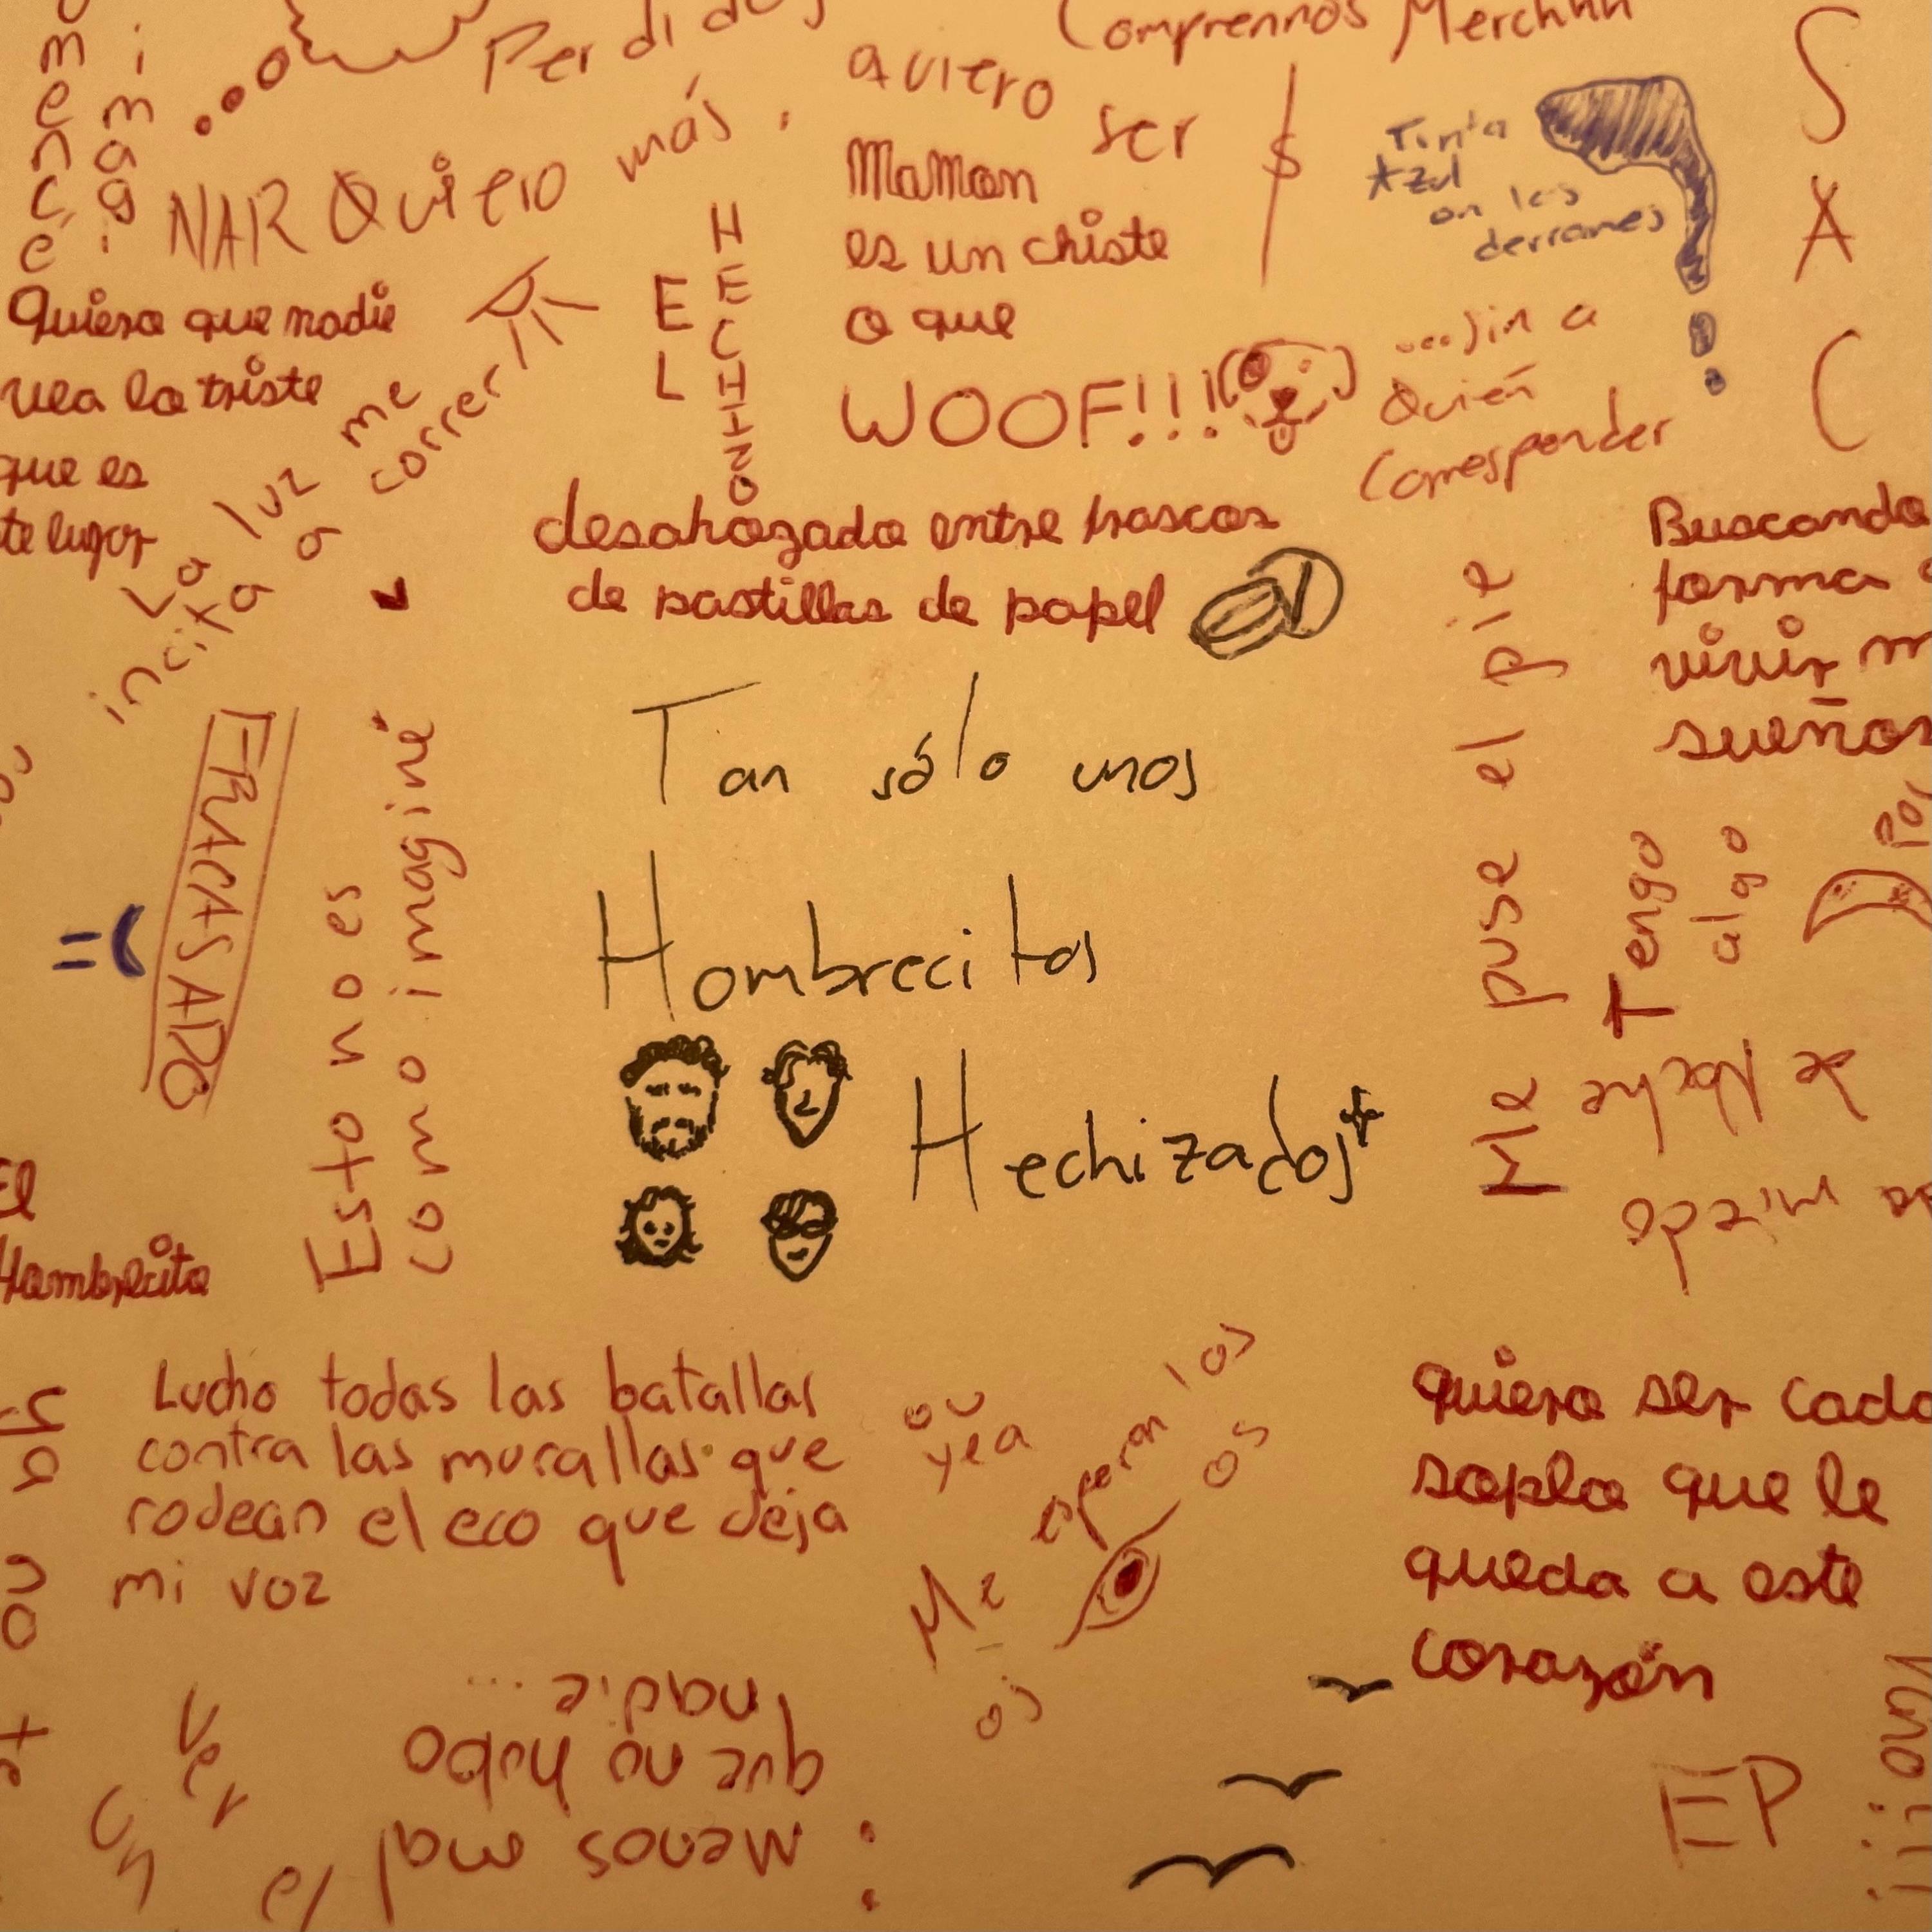 Perdidos
Comprennos Merchhh
mencé
imagi
NAR Quiero más, quiero ser
Mamon
es un chiste
o que
WOOF!!!
$
Tinta
Azul
en los
derrames
...sin a
Quién
Corresponder
S
A
C
Quiero que nadie
vea lo triste
que es
te lugar
La luz me
incita a correr
EL
HECHIZO
desahozado entre frascos
de pastillas de papel
Buscando
forma
vivir m
sueños
FRACASADO
=(
Esto no es
como imaginé
Tan sólo unos
Hombrecitos
Hechizados
Me puse el pie
Tengo
algo
de noche
da miedo
El
Hombrecito
Lucho todas las batallas
contra las murallas que
rodean el eco que deja
mi voz
ou
yea
Me esperan los
os
os
quiero ser cada
soplo que le
queda a este
corazón
Menos mal
que no hubo
nadie...
Ver
la
un
EP